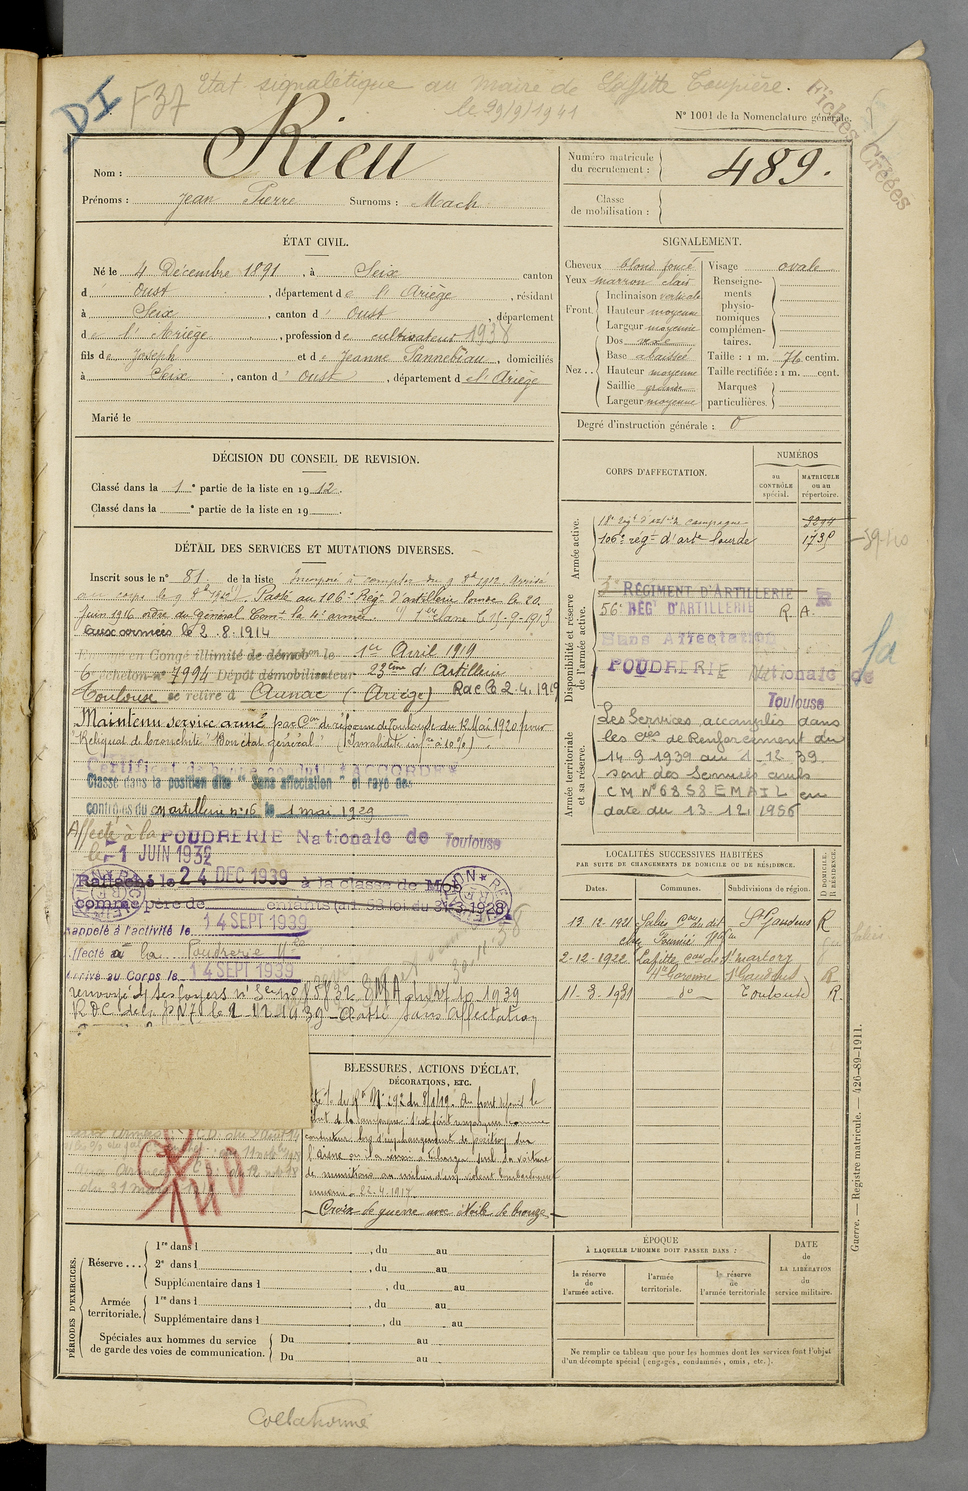 DI
F37
Etat signalétique au Maire de Laffitte Toupière.
le 29/9/1941
Fiches Créées
N° 1001 de la Nomenclature générale.
Nom : Rieu
Prénoms : Jean Pierre Surnoms : Mach
Numéro matricule du recrutement : 489.
Classe de mobilisation :
ÉTAT CIVIL.
Né le 4 Décembre 1891, à Seix canton
d Oust, département de l'Ariège, résidant
à Seix, canton d' Oust, département
de l'Ariège, profession de cultivateur 1938
fils de Joseph et de Jeanne Pannebiau, domiciliés
à Seix, canton d' Oust, département de l'Ariège
Marié le
SIGNALEMENT.
Cheveux blond foncé
Yeux marron clair
Front. Inclinaison verticale
Hauteur moyenne
Largeur moyenne
Nez.. Dos
Base abaissée
Hauteur moyenne
Saillie grande
Largeur moyenne
Visage ovale
Renseignements physionomiques complémentaires.
Taille : 1 m. 76 centim.
Taille rectifiée : 1 m. cent.
Marques particulières.
Degré d'instruction générale : 0
DÉCISION DU CONSEIL DE REVISION.
Classé dans la 1e partie de la liste en 1912.
Classé dans la e partie de la liste en 19
DÉTAIL DES SERVICES ET MUTATIONS DIVERSES.
Inscrit sous le n° 81. de la liste Incorporé à compter du 9 8bre 1912. Arrivé
au corps le 9 8bre 1912. Passé au 106e Rég. d'artillerie lourde le 20
Juin 1916 ordre du Général Comt la 4e armée. 1ère classe le 15-9-1913
aux armées le 2.8.1914
Envoyé en Congé illimité de démobon le 1er Avril 1919
6e échelon n° 7994 Dépôt démobilisateur 23ème d'Artillerie
Toulouse se retire à Aunac (Ariège) Rac le 2.4.1919
Maintenu service armé par Con de réforme de Toulouse du 12 Mai 1920 pour
"Reliquat de bronchite" Bon état général" (Invalidité infre à 10%).
Certificat de bonne conduite "ACCORDÉ"
Classé dans la position dite "Sans affectation" et rayé des
contrôles du artillerie n° 16 le 1 mai 1929
Affecté à la POUDRERIE Nationale de Toulouse
le 1 JUIN 1932
Rattaché le 24 DEC 1939 à la classe de Mob
comme père de enfants (art. 58 loi du 31-3-1928)
Rappelé à l'activité le 14 SEPT 1939
Affecté à la Poudrerie Nle
Arrivé au Corps le 14 SEPT 1939
renvoyé ds ses foyers 27-10-1939
R.D.C. de la PN7 le 2-12-1939 - Classé sans affectation
CORPS D'AFFECTATION.
NUMÉROS
au CONTRÔLE spécial.
MATRICULE ou au répertoire.
Armée active.
18e regt d'artie de campagne 3294
106e régt d'artie lourde 1735
Disponibilité et réserve de l'armée active.
REGIMENT D'ARTILLERIE
56e RÉGt D'ARTILLERIE R.A.
Sans Affectation
POUDRERIE Nationale de
Toulouse
Armée territoriale et sa réserve.
Les Services accomplis dans
les Cies de Renforcement du
14-9-1939 au 1-12-39
sont des Services civils
C M N° 6858 EMAIL en
date du 13.12.1956
LOCALITÉS SUCCESSIVES HABITÉES
PAR SUITE DE CHANGEMENTS DE DOMICILE OU DE RÉSIDENCE.
Dates. Communes. Subdivisions de région. D DOMICILE, R RÉSIDENCE.
13-12-1921 Salies Con du dit St Gaudens R
2-12-1922 Lafitte, con de St Martory
Hte Garonne St Gaudens R
11-3-1931 do Toulouse R.
BLESSURES, ACTIONS D'ÉCLAT,
DÉCORATIONS, ETC.
N° 292 du 8/1/19. Au front depuis le
début de la campagne s'est fait remarquer comme
conducteur. Lors d'un changement de position sur
l'Aisne seul sa voiture
de munitions au milieu d'un violent bombardement
ennemi. 22.4.1917.
Croix de guerre avec étoile de bronze
PÉRIODES D'EXERCICES.
Réserve... 1re dans l , du au
2e dans l , du au
Supplémentaire dans l , du au
Armée territoriale. 1re dans l , du au
Supplémentaire dans l , du au
Spéciales aux hommes du service de garde des voies de communication. Du au
Du au
ÉPOQUE
À LAQUELLE L'HOMME DOIT PASSER DANS :
la réserve de l'armée active.
l'armée territoriale.
la réserve de l'armée territoriale
DATE de LA LIBÉRATION du service militaire.
Ne remplir ce tableau que pour les hommes dont les services font l'objet
d'un décompte spécial (engagés, condamnés, omis, etc.).
Guerre. — Registre matricule. — 426-89-1911.
Collationné